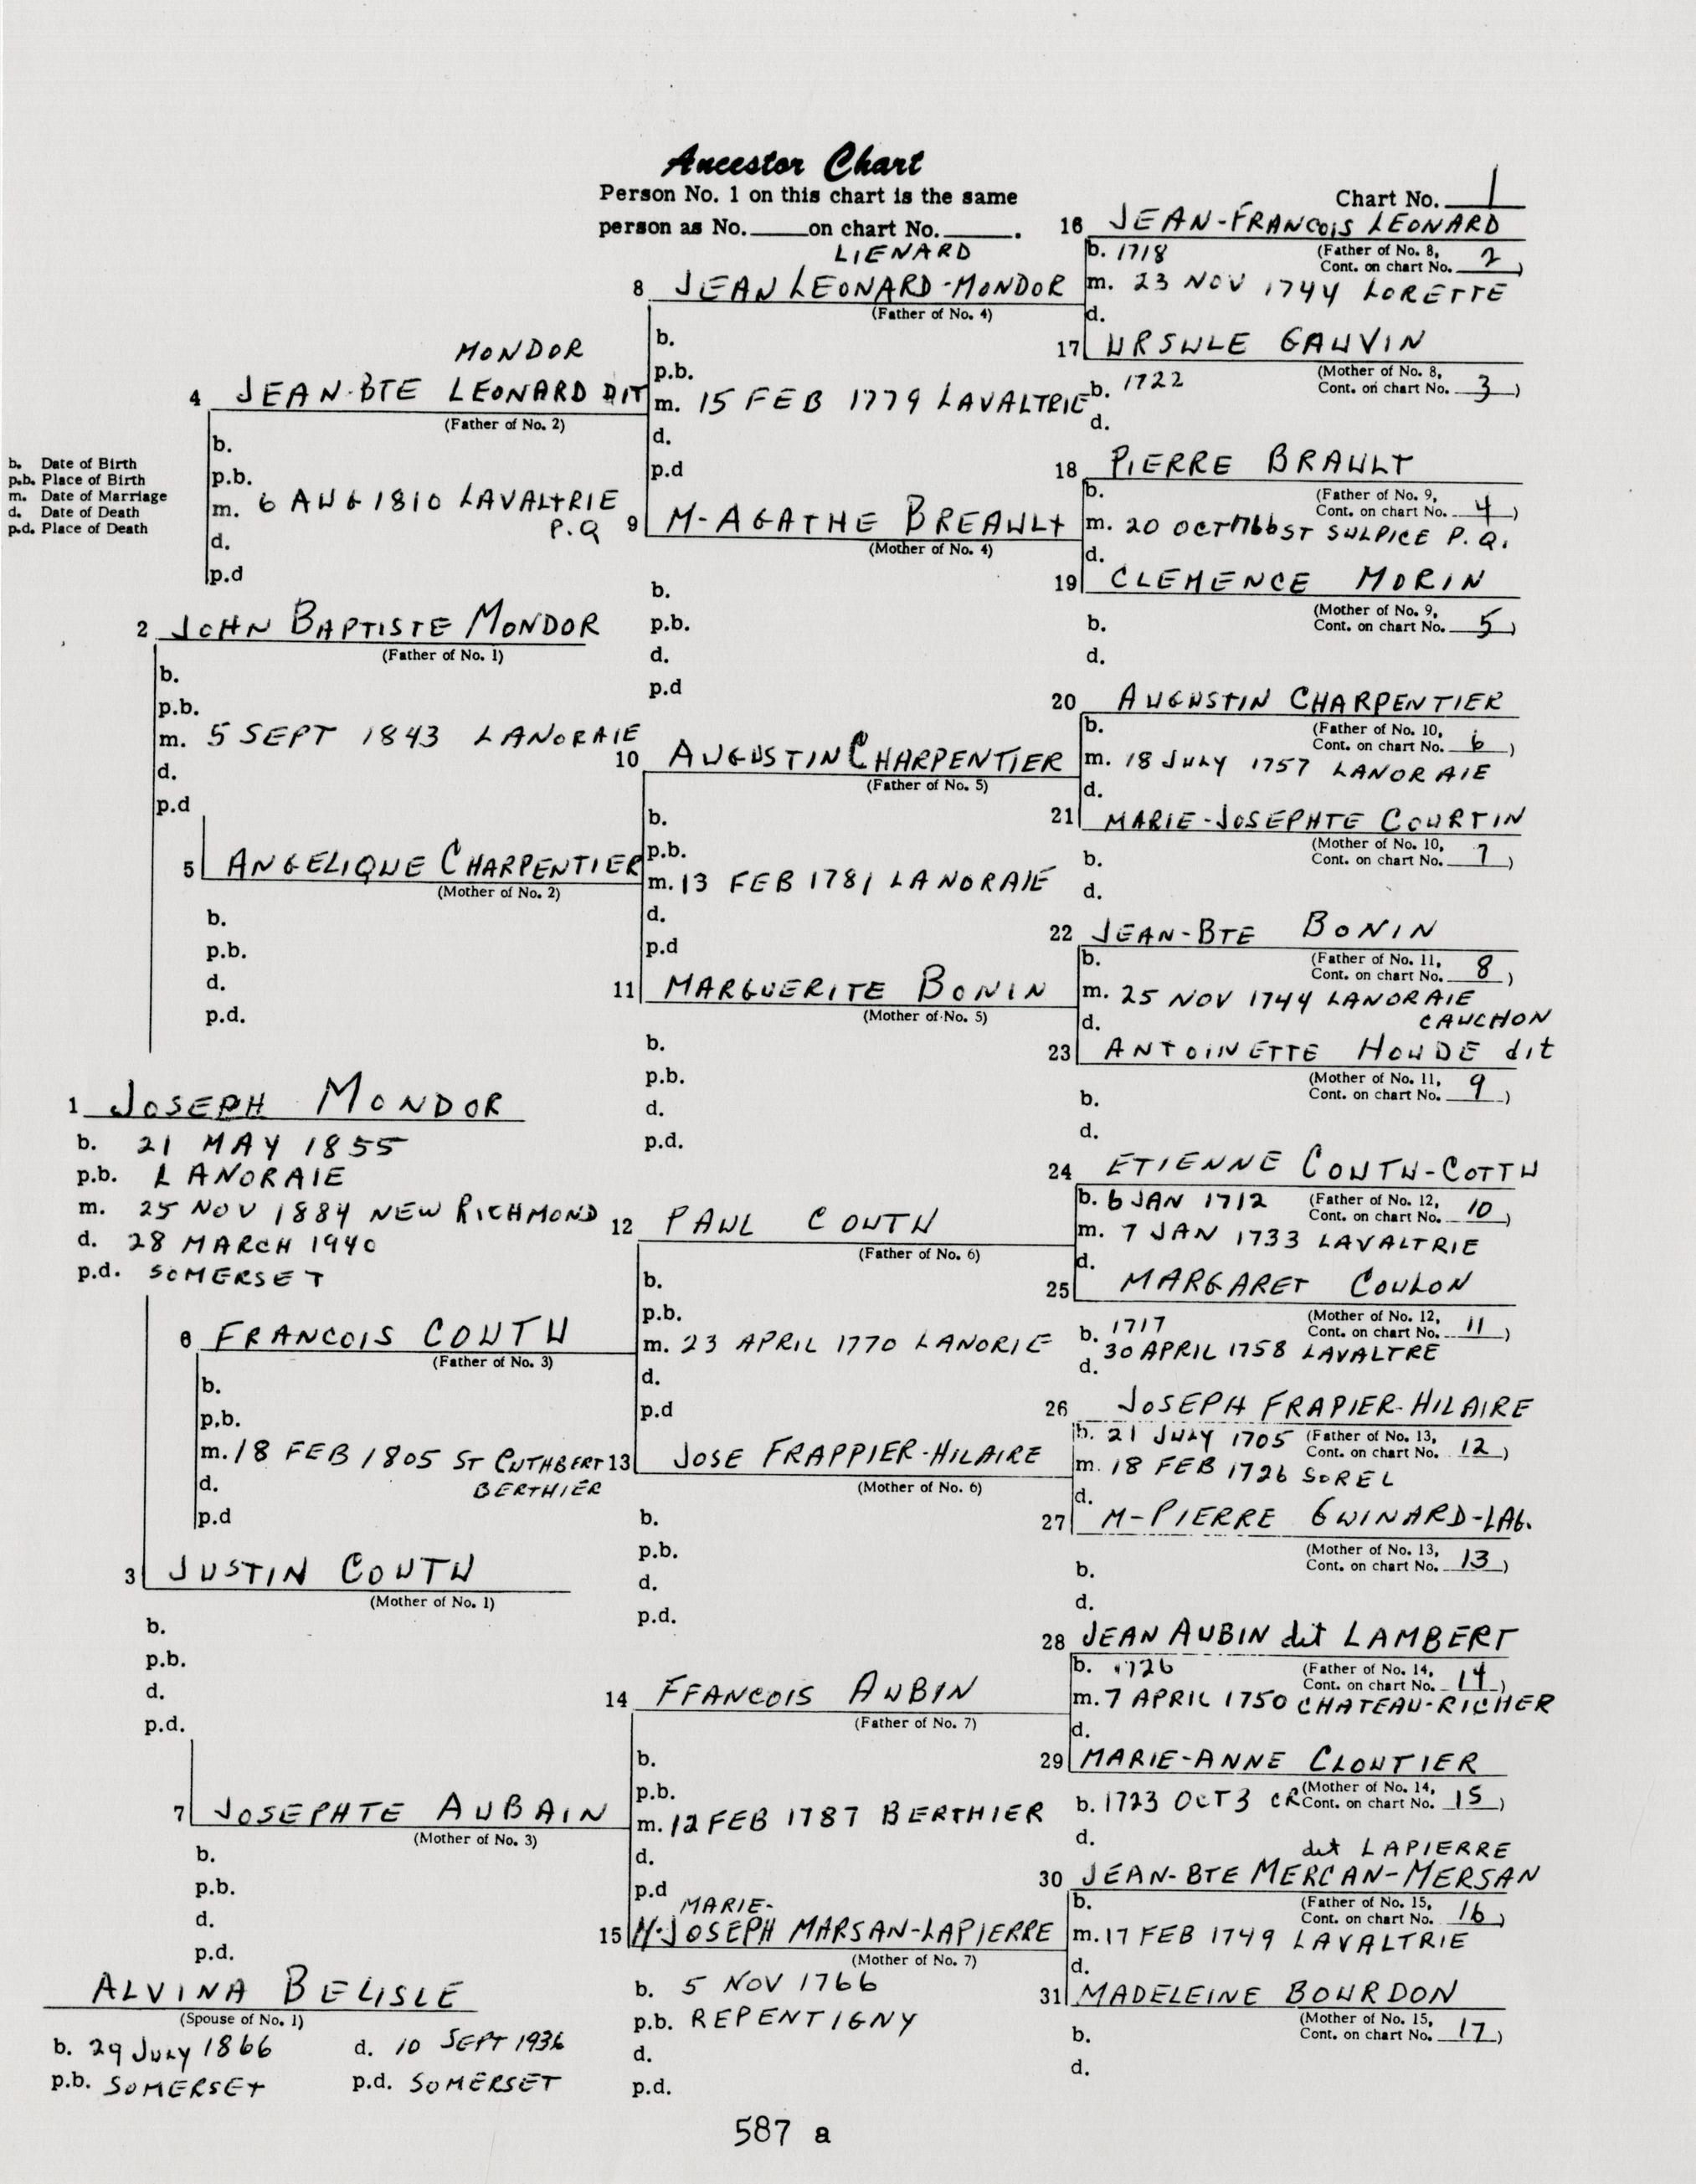 Ancestor Chart
Person No. 1 on this chart is the same
person as No. ____ on chart No. ____.
Chart No. 1
b. Date of Birth
p.b. Place of Birth
m. Date of Marriage
d. Date of Death
p.d. Place of Death
1 JOSEPH MONDOR
b. 21 MAY 1855
p.b. LANORAIE
m. 25 NOV 1884 NEW RICHMOND
d. 28 MARCH 1940
p.d. SOMERSET
2 JOHN BAPTISTE MONDOR
(Father of No. 1)
b.
p.b.
m. 5 SEPT 1843 LANORAIE
d.
p.d
3 JUSTIN COUTU
(Mother of No. 1)
b.
p.b.
d.
p.d.
MONDOR
4 JEAN-BTE LEONARD DIT
(Father of No. 2)
b.
p.b.
m. 6 AUG 1810 LAVALTRIE
P.Q
d.
p.d
5 ANGELIQUE CHARPENTIER
(Mother of No. 2)
b.
p.b.
d.
p.d.
6 FRANCOIS COUTU
(Father of No. 3)
b.
p.b.
m. 18 FEB 1805 ST CUTHBERT
BERTHIER
d.
p.d
7 JOSEPHTE AUBAIN
(Mother of No. 3)
b.
p.b.
d.
p.d.
ALVINA BELISLE
(Spouse of No. 1)
b. 29 JULY 1866 d. 10 SEPT 1936
p.b. SOMERSET p.d. SOMERSET
LIENARD
8 JEAN LEONARD-MONDOR
(Father of No. 4)
b.
p.b.
m. 15 FEB 1779 LAVALTRIE
d.
p.d
9 M-AGATHE BREAULT
(Mother of No. 4)
b.
p.b.
d.
p.d
10 AUGUSTIN CHARPENTIER
(Father of No. 5)
b.
p.b.
m. 13 FEB 1781 LANORAIE
d.
p.d
11 MARGUERITE BONIN
(Mother of No. 5)
b.
p.b.
d.
p.d.
12 PAUL COUTU
(Father of No. 6)
b.
p.b.
m. 23 APRIL 1770 LANORIE
d.
p.d
13 JOSE FRAPPIER-HILAIRE
(Mother of No. 6)
b.
p.b.
d.
p.d.
14 FFANCOIS AUBIN
(Father of No. 7)
b.
p.b.
m. 12 FEB 1787 BERTHIER
d.
p.d
MARIE-
15 M-JOSEPH MARSAN-LAPIERRE
(Mother of No. 7)
b. 5 NOV 1766
p.b. REPENTIGNY
d.
p.d.
16 JEAN-FRANCOIS LEONARD
b. 1718 (Father of No. 8,
Cont. on chart No. 2)
m. 23 NOV 1744 LORETTE
d.
17 URSULE GAUVIN
(Mother of No. 8,
b. 1722 Cont. on chart No. 3)
d.
18 PIERRE BRAULT
b. (Father of No. 9,
Cont. on chart No. 4)
m. 20 OCT 1766 ST SULPICE P.Q.
d.
19 CLEMENCE MORIN
(Mother of No. 9,
b. Cont. on chart No. 5)
d.
20 AUGUSTIN CHARPENTIER
b. (Father of No. 10,
Cont. on chart No. 6)
m. 18 JULY 1757 LANORAIE
d.
21 MARIE-JOSEPHTE COURTIN
(Mother of No. 10,
b. Cont. on chart No. 7)
d.
22 JEAN-BTE BONIN
b. (Father of No. 11,
Cont. on chart No. 8)
m. 25 NOV 1744 LANORAIE
d. CAUCHON
23 ANTOINETTE HOUDE dit
(Mother of No. 11,
b. Cont. on chart No. 9)
d.
24 ETIENNE COUTU-COTTU
b. 6 JAN 1712 (Father of No. 12,
Cont. on chart No. 10)
m. 7 JAN 1733 LAVALTRIE
d.
25 MARGARET COULON
(Mother of No. 12,
b. 1717 Cont. on chart No. 11)
d. 30 APRIL 1758 LAVALTRE
26 JOSEPH FRAPIER-HILAIRE
b. 21 JULY 1705 (Father of No. 13,
Cont. on chart No. 12)
m. 18 FEB 1726 SOREL
d.
27 M-PIERRE GUINARD-LAG.
(Mother of No. 13,
b. Cont. on chart No. 13)
d.
28 JEAN AUBIN dit LAMBERT
b. 1726 (Father of No. 14,
Cont. on chart No. 14)
m. 7 APRIL 1750 CHATEAU-RICHER
d.
29 MARIE-ANNE CLOUTIER
(Mother of No. 14,
b. 1723 OCT 3 CR Cont. on chart No. 15)
d.
dit LAPIERRE
30 JEAN-BTE MERCAN-MERSAN
b. (Father of No. 15,
Cont. on chart No. 16)
m. 17 FEB 1749 LAVALTRIE
d.
31 MADELEINE BOURDON
(Mother of No. 15,
b. Cont. on chart No. 17)
d.
587 a